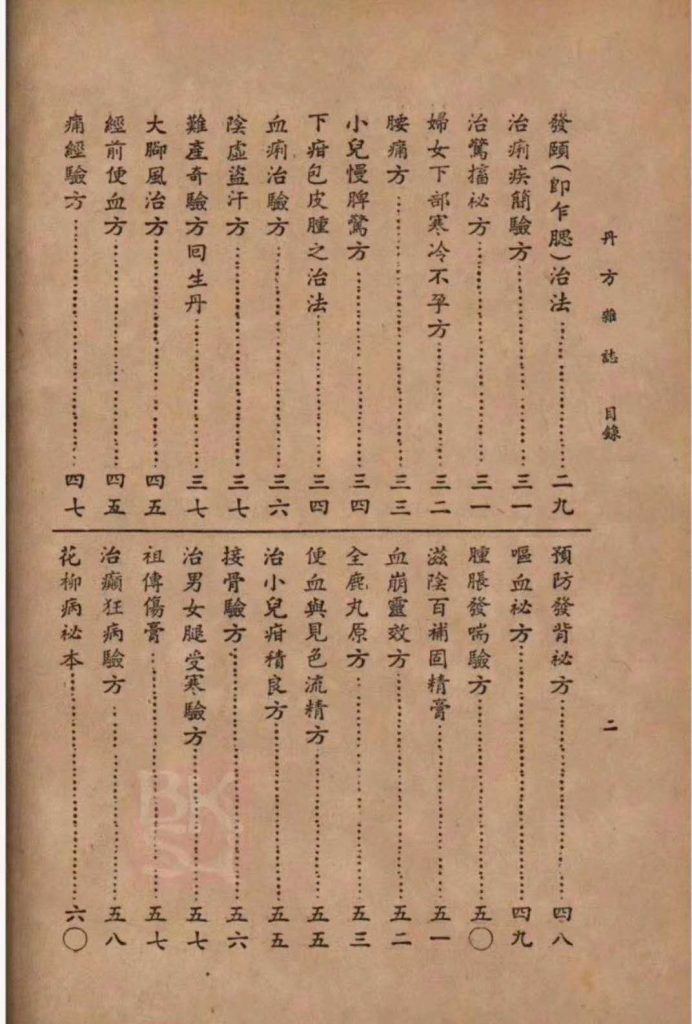 丹方雜誌 目錄 二
發頤(卽乍腮)治法……二九
治痢疾簡驗方……三一
治驚搐祕方……三一
婦女下部寒冷不孕方……三二
腰痛方……三三
小兒慢脾驚方……三四
下疳包皮腫之治法……三四
血痢治驗方……三六
陰虛盜汗方……三七
難產奇驗方回生丹……三七
大脚風治方……四五
經前便血方……四五
痛經驗方……四七
預防發背祕方……四八
嘔血祕方……四九
腫脹發喘驗方……五〇
滋陰百補固精膏……五一
血崩靈效方……五二
全鹿丸原方……五三
便血與見色流精方……五五
治小兒疳積良方……五五
接骨驗方……五六
治男女腿受寒驗方……五七
祖傳傷膏……五七
治癲狂病驗方……五八
花柳病祕本……六〇